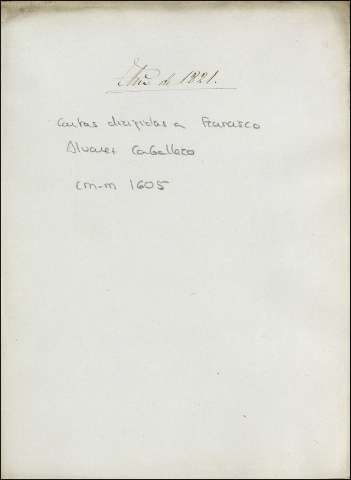 Año de 1821.
Cartas dirigidas a Francisco
Alvarez Caballero
CM-M 1605